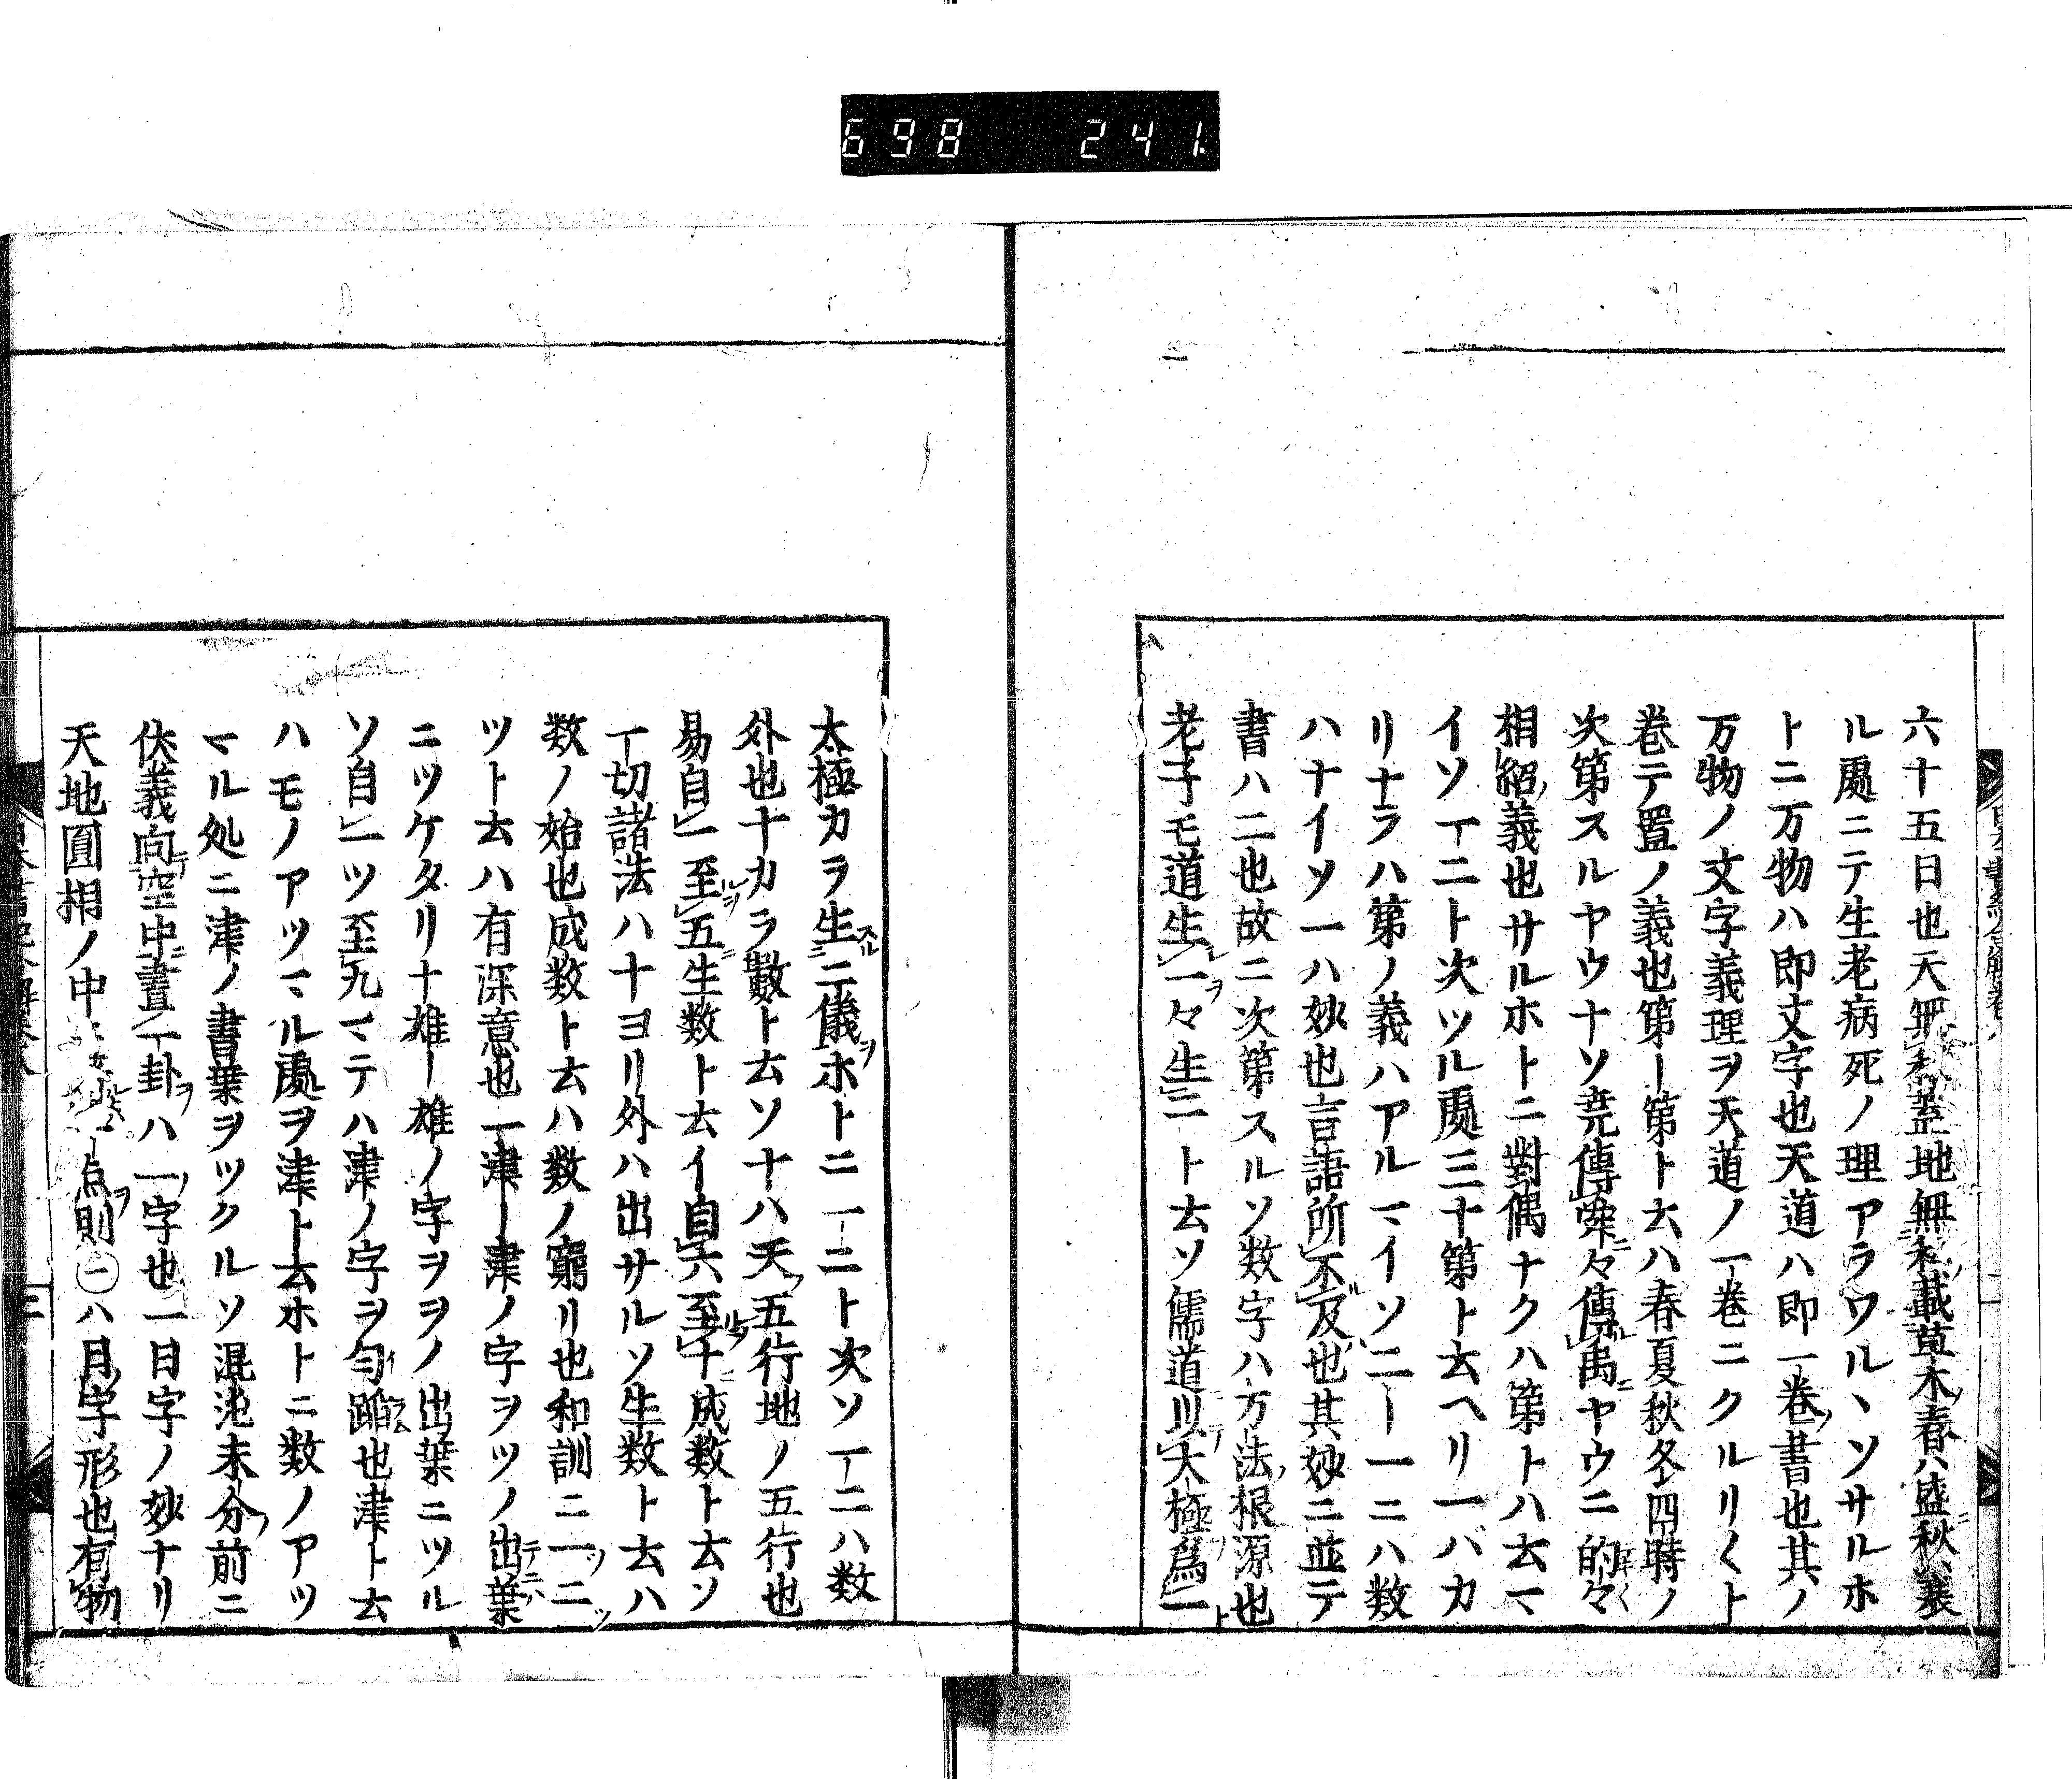 698 241
六十五日也天無私蓋地無私載草木春ハ盛秋ハ衰
ル處ニテ生老病死ノ理アラワルヽソサルホ
トニ万物ハ即文字也天道ハ即一巻ノ書也其ノ
万物ノ文字義理ヲ天道ノ一巻ニクルリ〱ト
巻テ置ノ義也第一第ト云ハ春夏秋冬四時ノ
次第スルヤウナソ尭傳舜々傳禹ヤウニ的々
相紹義也サルホトニ對偶ナクハ第トハ云マ
イソ一二ト次ツル處三十第ト云ヘリ一バカ
リナラハ第ノ義ハアルマイソ二ー一ニハ数
ハナイソ一ハ妙也言語所不及也其妙ニ並テ
書ハ二也故ニ次第スルソ数字ハ万法ノ根源也
老子モ道生一々生二ト云ソ儒道以大極爲一
太極カラ生二儀ホトニ一ー二ト次ソ一ー二ハ数
外也十カラ數ト云ソ十ハ天ノ五行地ノ五行也
易自一至五生数ト云イ自六至十成数ト云ソ
一切諸法ハ十ヨリ外ハ出サルソ生数ト云ハ
数ノ始也成数ト云ハ数ノ窮リ也和訓ニ一ツ二ツ
ツト云ハ有深意也一津ー津ノ字ヲツノ出葉
ニツケタリ十雄ー雄ノ字ヲヲノ出葉ニツル
ソ自一ツ至九マテハ津ノ字ヲ匂蹈也津ト云
ハモノアツマル處ヲ津ト云ホトニ数ノアツ
マル処ニ津ノ書葉ヲツクルソ混沌未分ノ前ニ
伏義向空中畫一卦ハ一字也一日字ノ妙ナリ
天地圓相ノ中点則㊀ハ月字形也有物